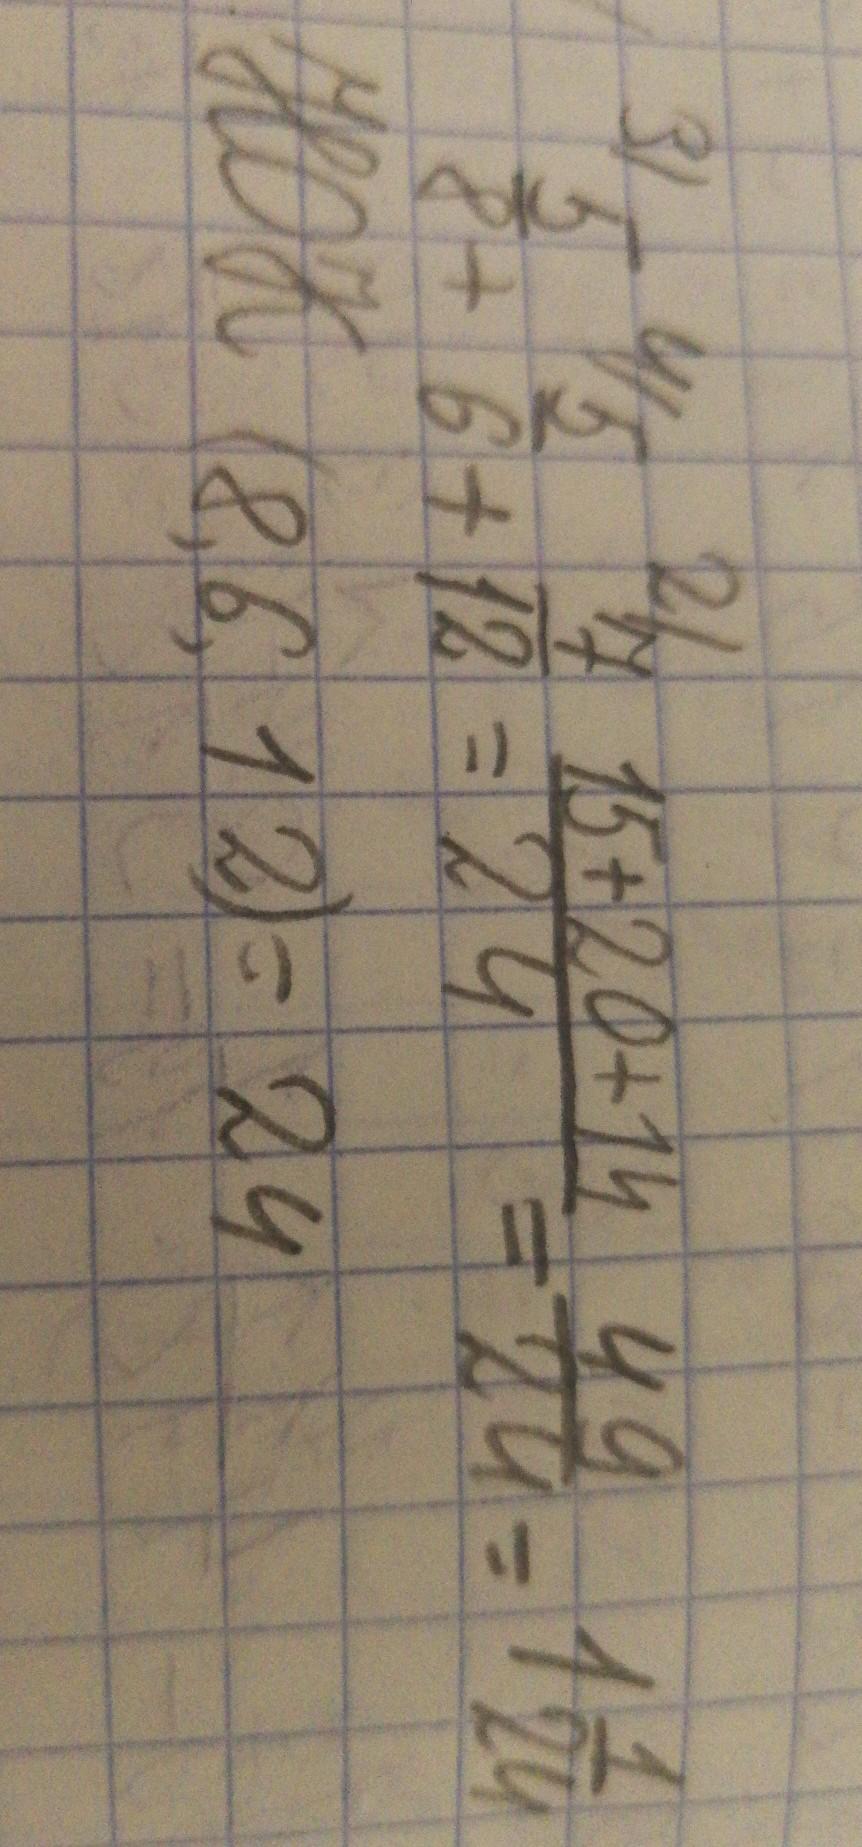 3\ 4\ 2\
5/8 + 5/6 + 7/12 = 15+20+14/24 = 49/24 = 1 1/24
НОК (8, 6, 12) = 24